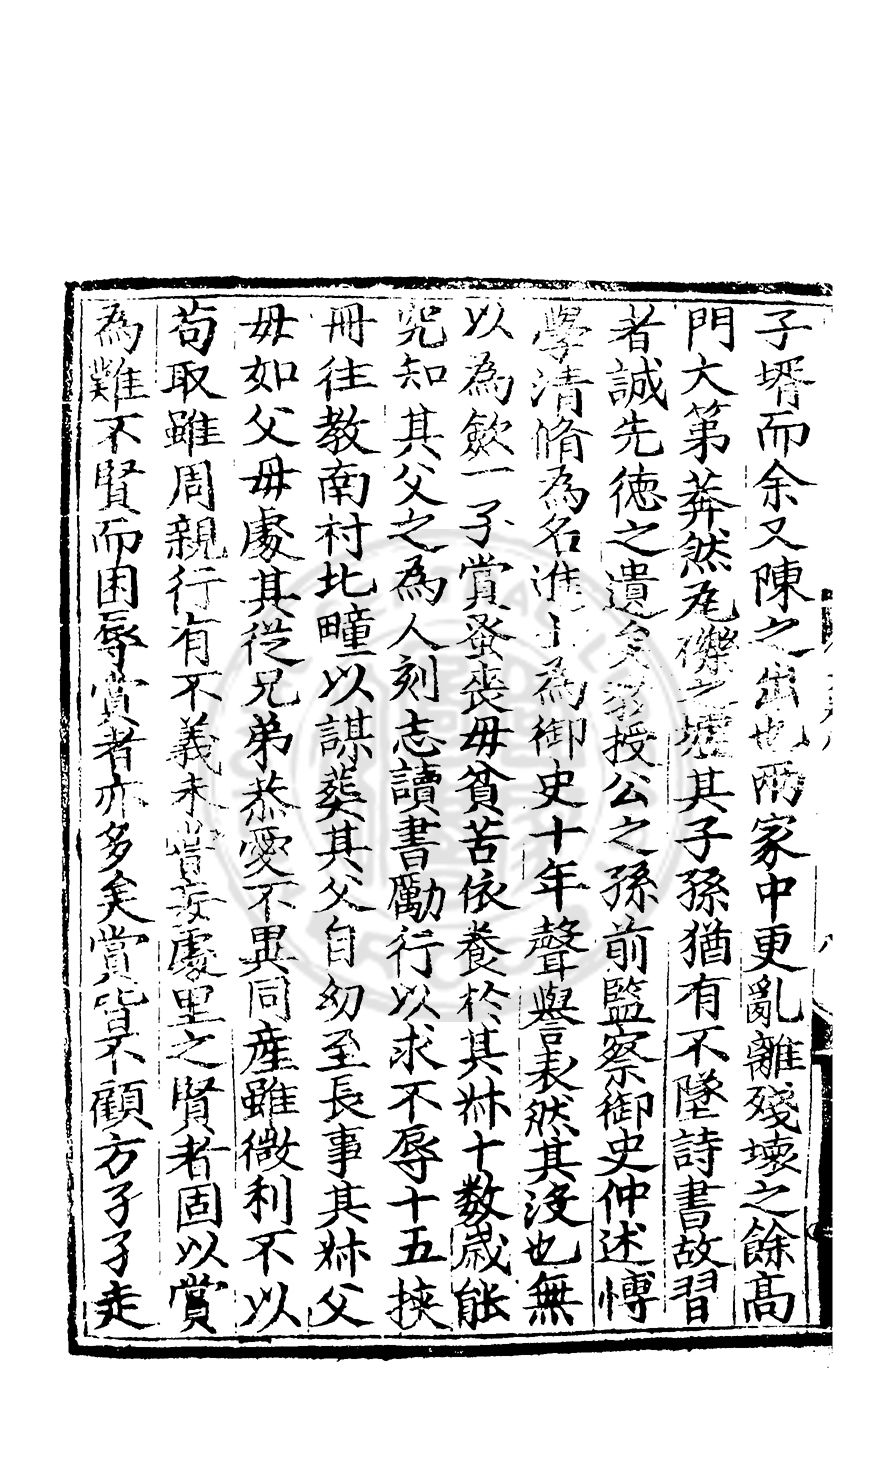 子壻而余又陳之出也兩家中更亂離殘壞之餘高
門大第莽然瓦礫之墟其子孫猶有不墜詩書故習
者誠先德之遺矣教授公之孫前監察御史仲述博
學清脩為名進士為御史十年聲譽表然其沒也無
以為歛一子賞蚤喪毋貧苦依養於其叔十數歲能
究知其父之為人刻志讀書勵行以求不辱十五挾
冊往教南村北疃以謀葬其父自幼至長事其叔父
毋如父毋處其從兄弟恭愛不異同産雖微利不以
苟取雖周親行有不義未嘗妄處里之賢者固以賞
為難不賢而困辱賞者亦多矣賞皆不顧方孑孑走